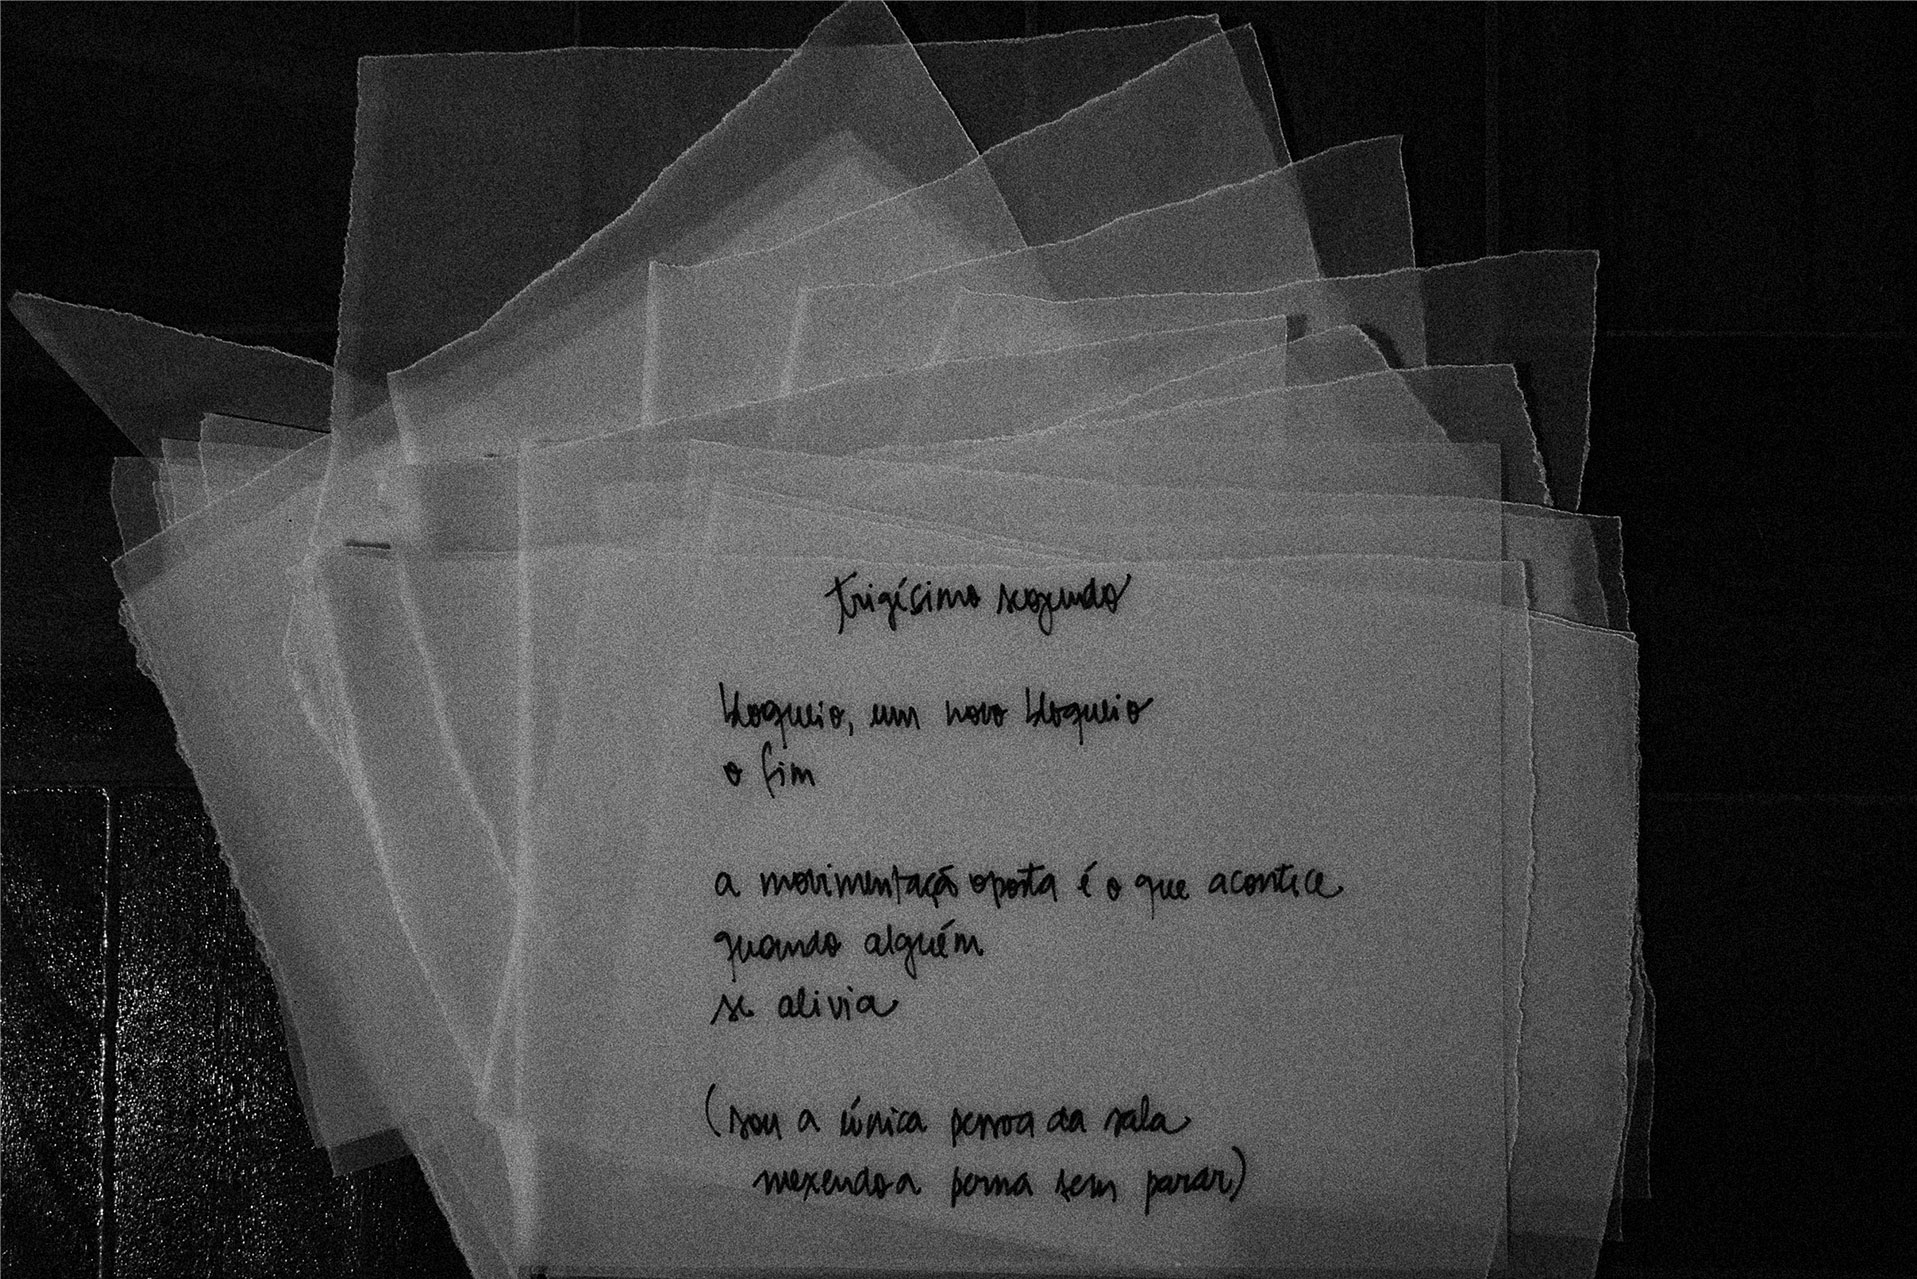 trigísimo segundo
bloqueio, um novo bloqueio
o fim
a movimentação oposta é o que acontece
quando alguém
se alivia
(sou a única pessoa da sala
mexendo a perna sem parar)